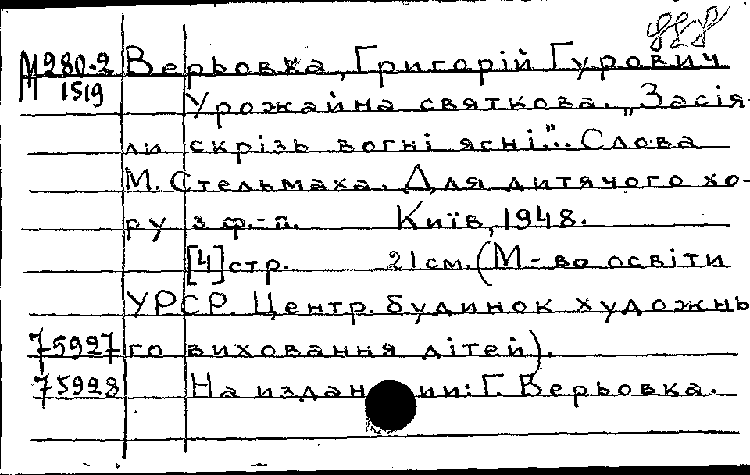 888
М280-2 Верьовка, Григорій Гурович
1519 Урожайна святкова. „Засія-
ли скрізь вогні ясні".. Слова
М. Стельмаха. Для дитячого хо-
ру з ф.-п. Київ, 1948.
[4] стр. 21 см. (М-во освіти
УРСР. Центр. будинок художнь
75927 го виховання дітей).
75928 На издании: Г. Верьовка.